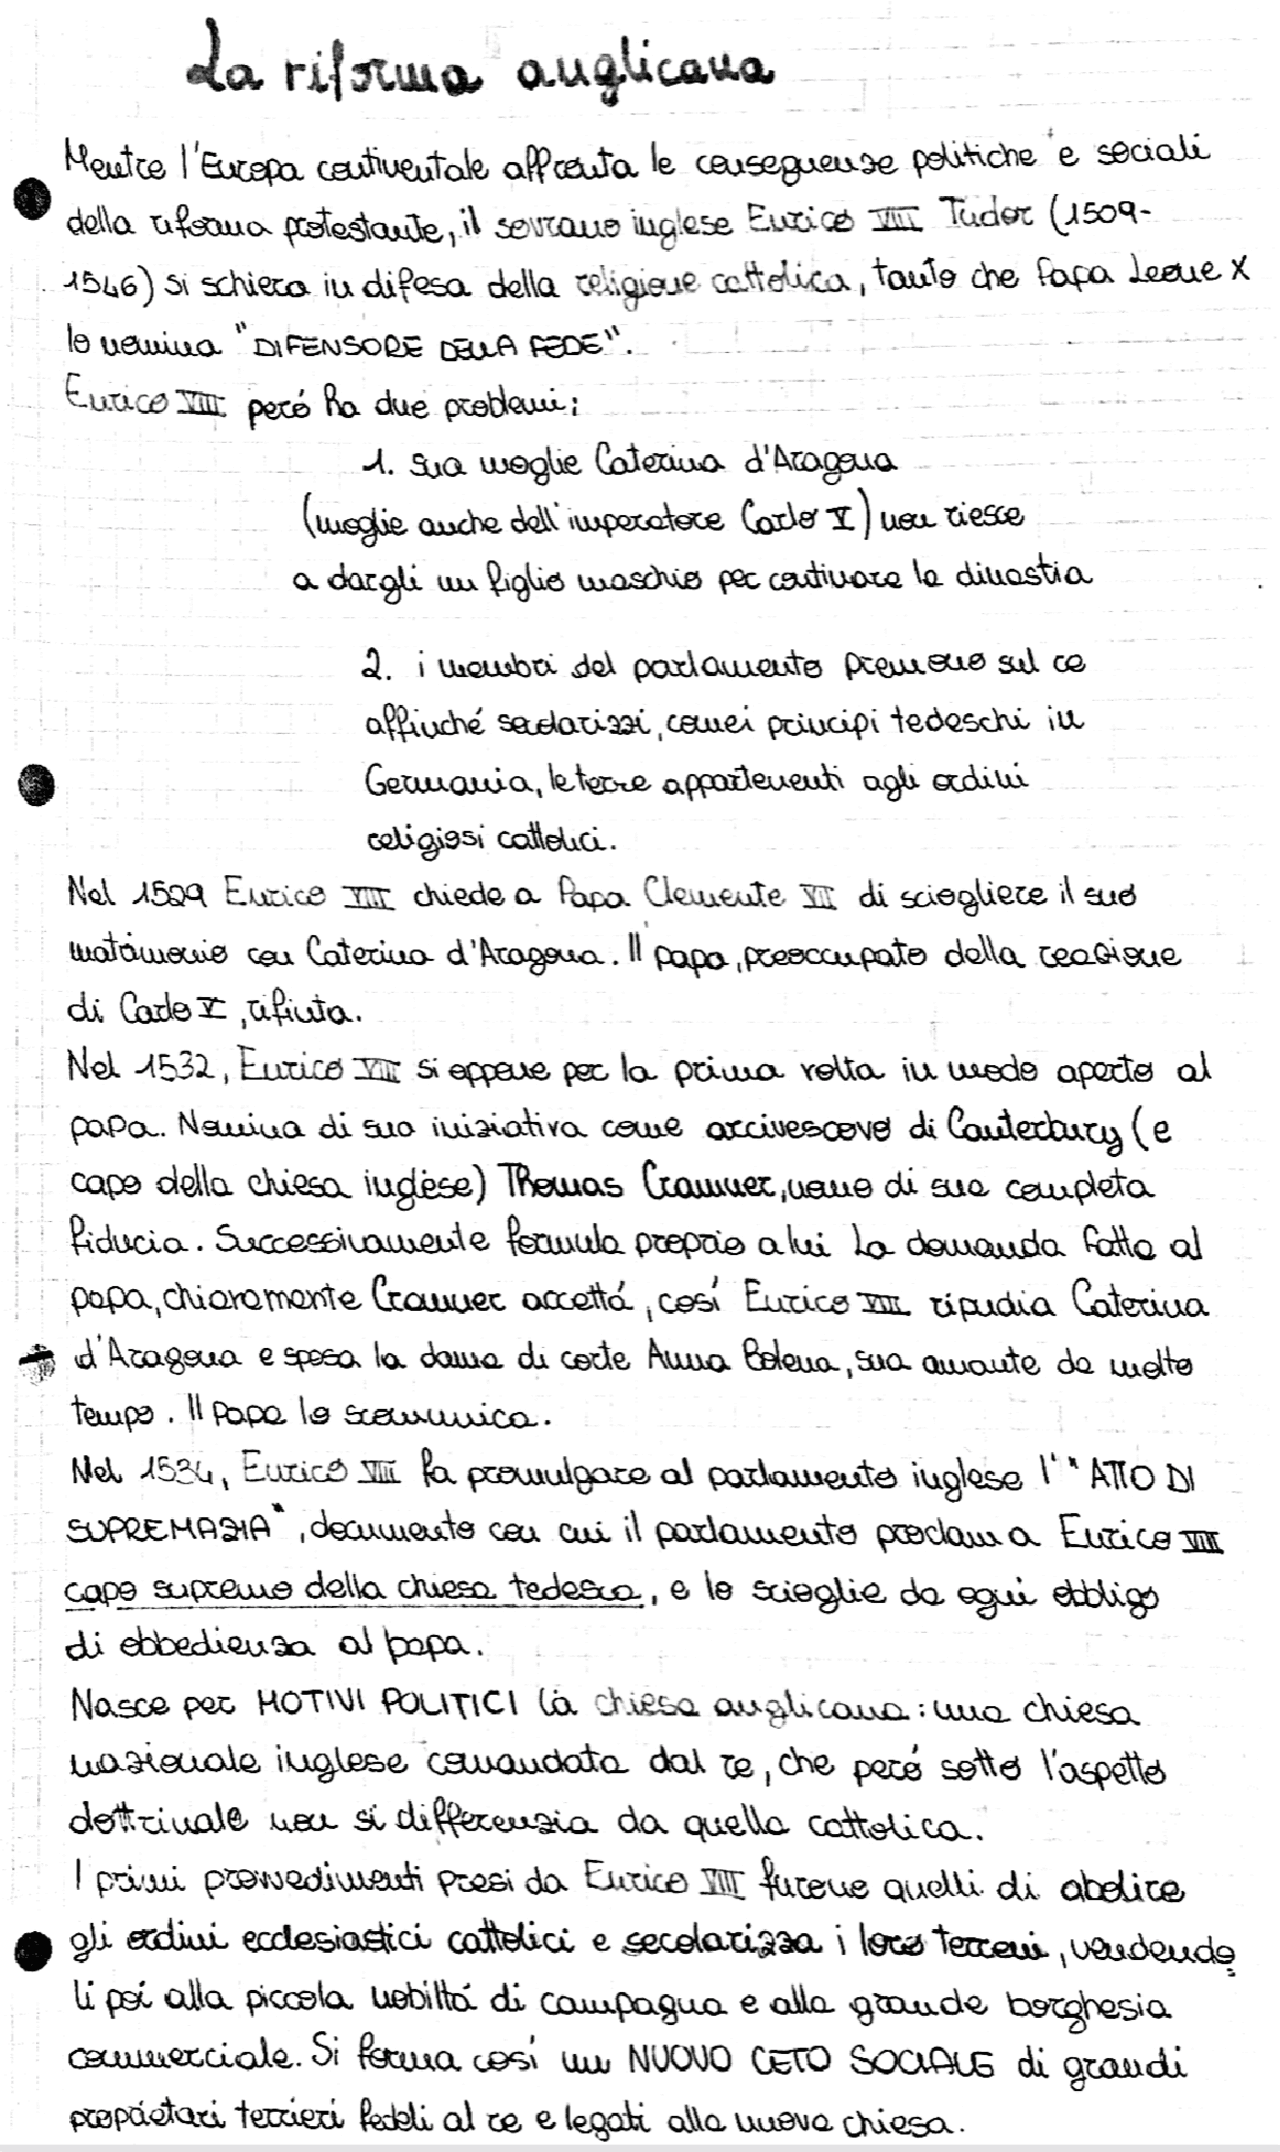 La riforma anglicana
Mentre l'Europa continentale affronta le conseguenze politiche e sociali
della riforma protestante, il sovrano inglese Enrico VIII Tudor (1509-
1546) si schiera in difesa della religione cattolica, tanto che Papa Leone X
lo nomina "DIFENSORE DELLA FEDE".
Enrico VIII peró ha due problemi:
1. sua moglie Caterina d'Aragona
(moglie anche dell'imperatore Carlo V) non riesce
a dargli un figlio maschio per continuare la dinastia
2. i membri del parlamento premono sul re
affinché secolarizzi, come i principi tedeschi in
Germania, le terre appartenenti agli ordini
religiosi cattolici.
Nel 1529 Enrico VIII chiede a Papa Clemente VII di sciogliere il suo
matrimonio con Caterina d'Aragona. Il papa, preoccupato della reazione
di Carlo V, rifiuta.
Nel 1532, Enrico VIII si oppone per la prima volta in modo aperto al
papa. Nomina di sua iniziativa come arcivescovo di Canterbury (e
capo della chiesa inglese) Thomas Cranmer, uomo di sua completa
fiducia. Successivamente formula proprio a lui la domanda fatta al
papa, chiaramente Cranmer accettá, cosí Enrico VIII ripudia Caterina
d'Aragona e sposa la dama di corte Anna Bolena, sua amante da molto
tempo. Il Papa lo scomunica.
Nel 1534, Enrico VIII fa promulgare al parlamento inglese l'"ATTO DI
SUPREMAZIA", documento con cui il parlamento proclama Enrico VIII
capo supremo della chiesa tedesca, e lo scioglie da ogni obbligo
di obbedienza al papa.
Nasce per MOTIVI POLITICI la chiesa anglicana: una chiesa
nazionale inglese comandata dal re, che peró sotto l'aspetto
dottrinale non si differenzia da quella cattolica.
I primi provvedimenti presi da Enrico VIII furono quelli di abolire
gli ordini ecclesiastici cattolici e secolarizza i loro terreni, vendendo
li poi alla piccola nobiltá di campagna e alla grande borghesia
commerciale. Si forma cosí un NUOVO CETO SOCIALE di grandi
proprietari terrieri fedeli al re e legati alla nuova chiesa.